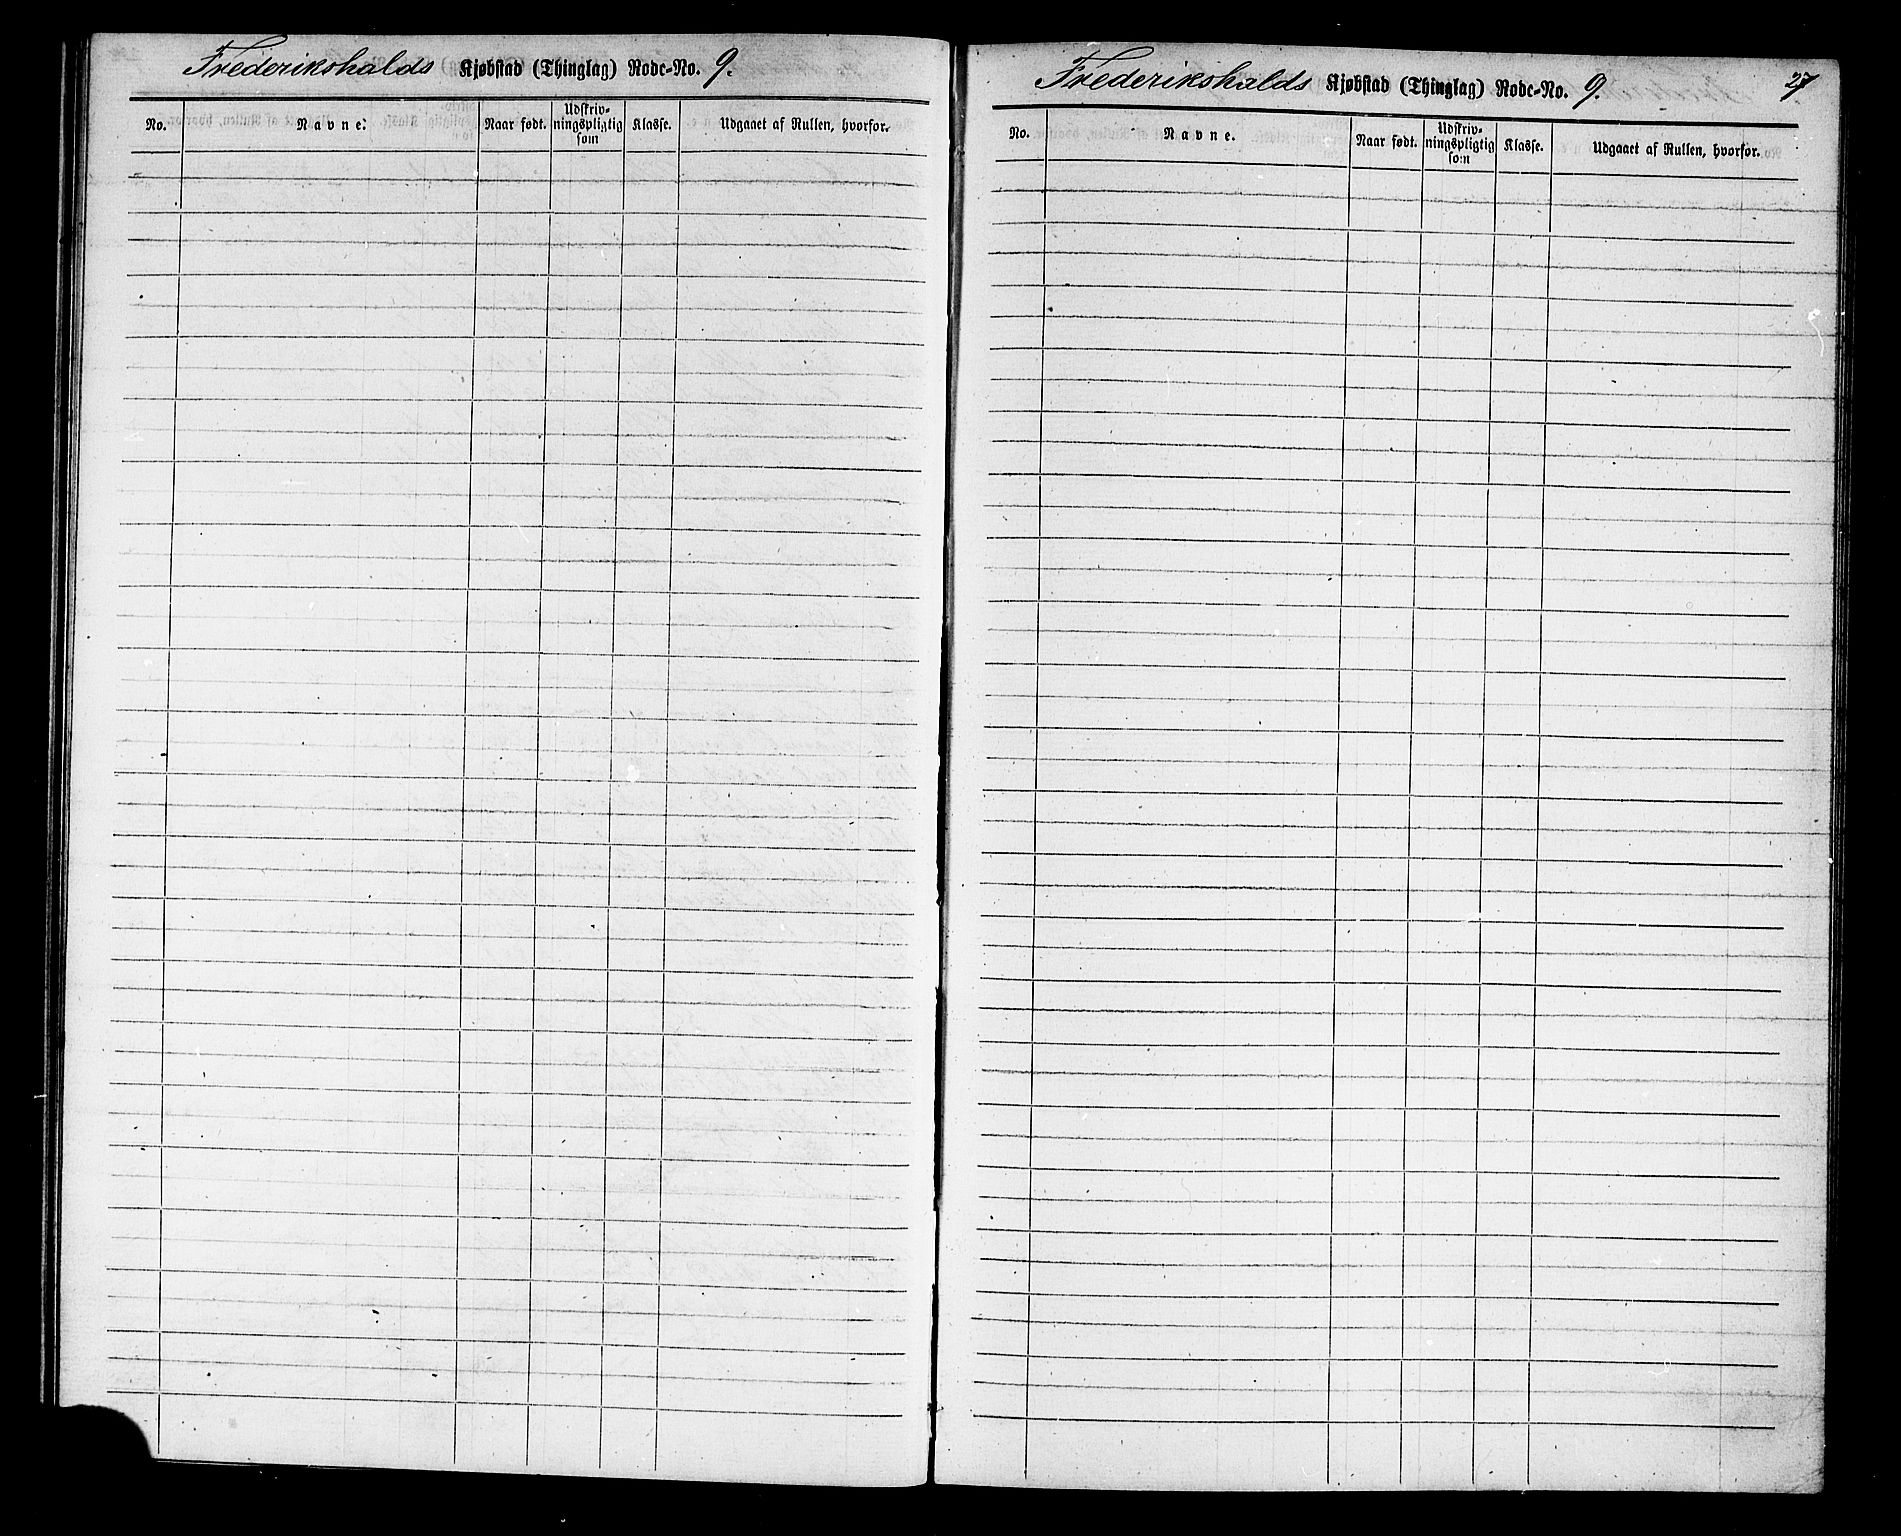 Frederikshalds Kjøbstad (Thinglag) Rode-No. 9.
No. Navne. Naar født. Udskriv-
ningspligtig
som Klasse. Udgaaet af Rullen, hvorfor.
Frederikshalds Kjøbstad (Thinglag) Rode-No. 9. 27
No. Navne. Naar født. Udskriv-
ningspligtig
som Klasse. Udgaaet af Rullen, hvorfor.